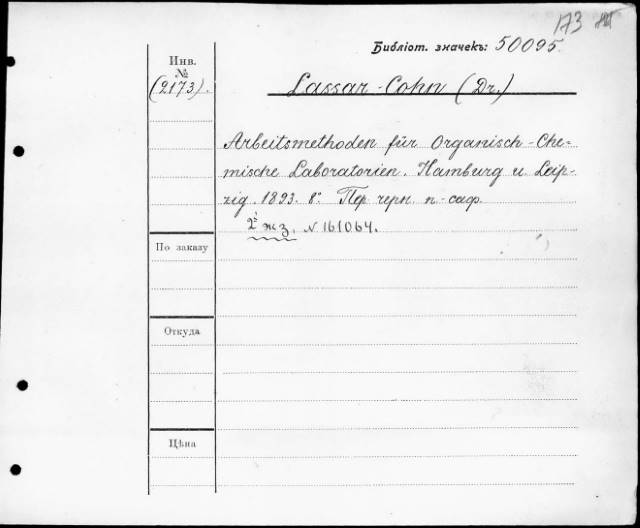 173
Библіот. значекъ: 50095.
Инв.
№
(2173).
Lassar-Cohn (Dr.)
Arbeitsmethoden für Organisch-Che=
mische Laboratorien. Hamburg u. Leip-
zig. 1893. 8º. Пер. черн. п-саф.
2й экз. N 161064.
По заказу
Откуда
Цѣна